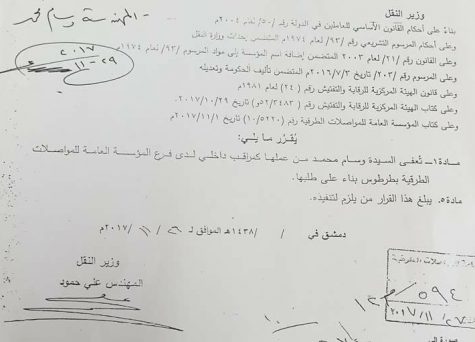 وزير النقل
المهندسة وسام محمد
٢٠١٧
١١-٢٩
بناءً على أحكام القانون الأساسي للعاملين في الدولة رقم /٥٠/ لعام ٢٠٠٤م
وعلى أحكام المرسوم التشريعي رقم /٩٣/ لعام ١٩٧٤م المتضمن إحداث وزارة النقل
وعلى القانون رقم /٢١/ لعام ٢٠٠٣ المتضمن إضافة اسم المؤسسة إلى مواد المرسوم /٩٣/ لعام ١٩٧٤م
وعلى المرسوم رقم /٢٠٣/ تاريخ ٢٠١٦/٧/٣م المتضمن تأليف الحكومة وتعديله
وعلى قانون الهيئة المركزية للرقابة والتفتيش رقم (٢٤) لعام ١٩٨١م
وعلى كتاب الهيئة المركزية للرقابة والتفتيش رقم (٥٢/٣٤٨٣و) تاريخ ٢٠١٧/١٠/٢٩م.
وعلى كتاب المؤسسة العامة للمواصلات الطرقية رقم (١٠/٥٢٢٠) تاريخ ٢٠١٧/١١/١م
يُقرّر ما يلي:
مادة١– تُعفى السيدة وسام محمد من عملها كمراقب داخلي لدى فرع المؤسسة العامة للمواصلات
الطرقية بطرطوس بناء على طلبها.
مادة٥. يبلغ هذا القرار من يلزم لتنفيذه.
دمشق في / /١٤٣٨هـ الموافق لـ / /٢٠١٧م
وزير النقل
المهندس علي حمود
٥٩٤
٢٠١٧/١١/٢٧
صورة إلى